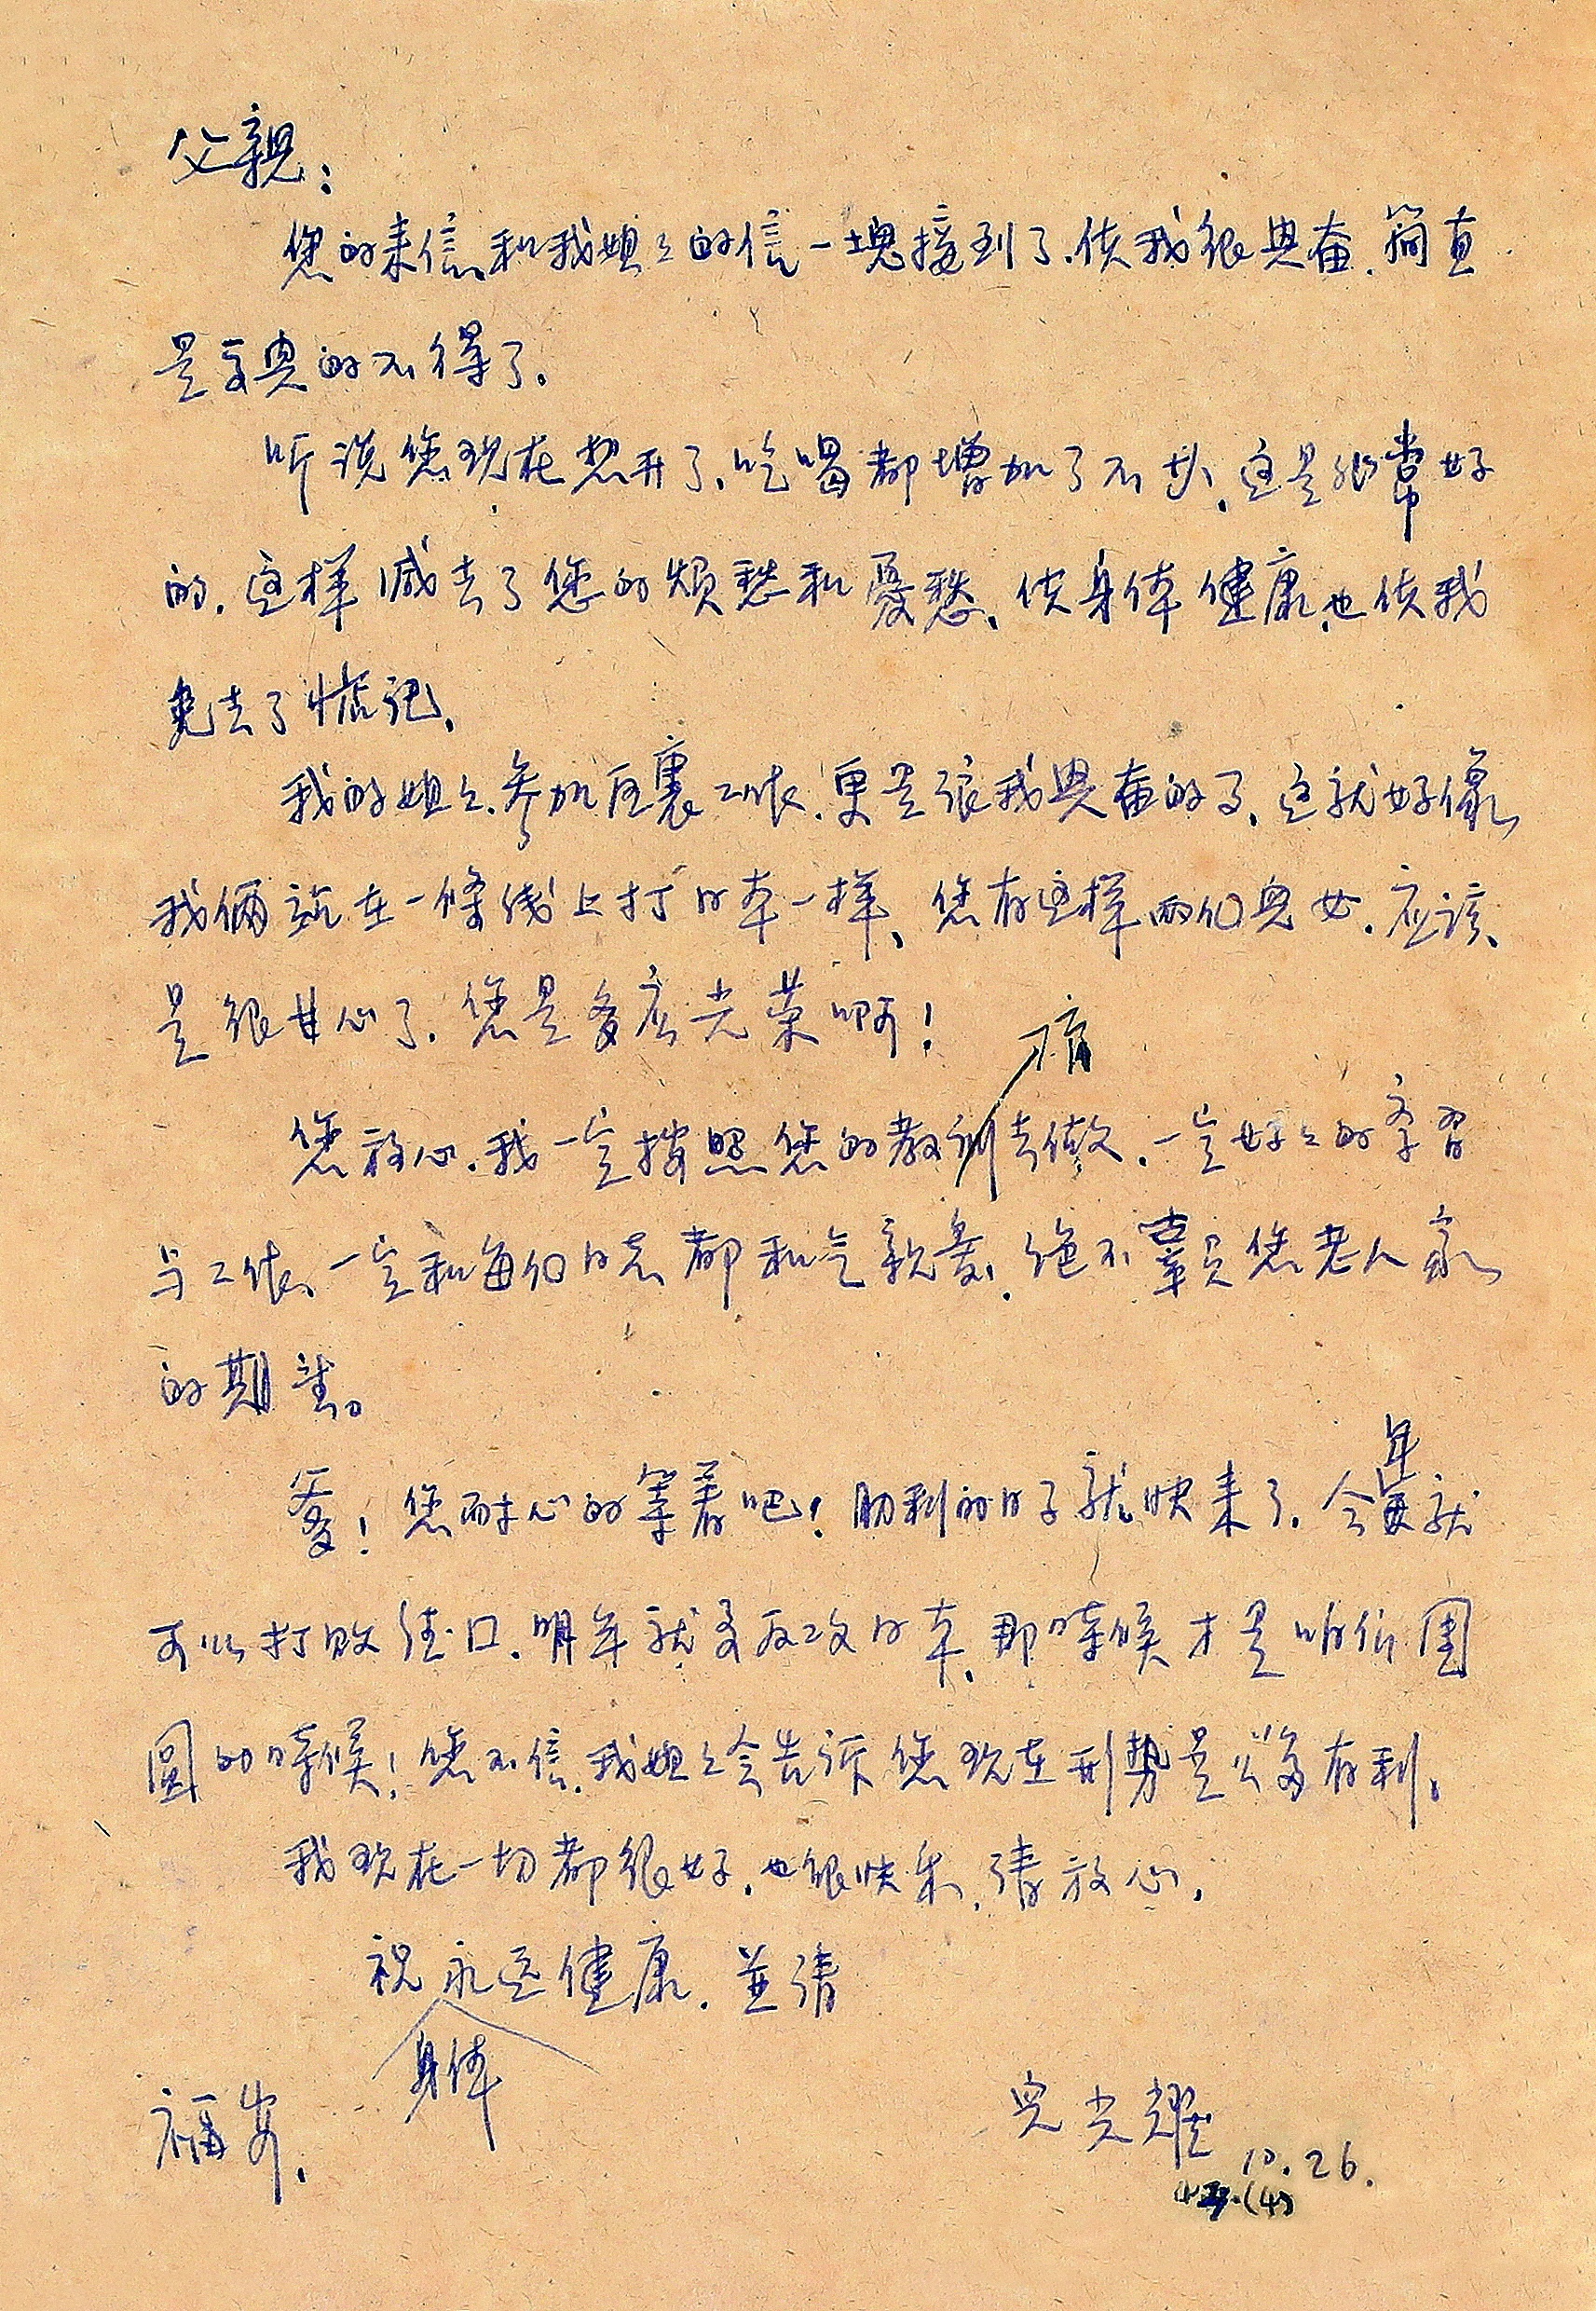 父親：
您的来信、和我姐々的信一塊接到了.使我很興奮.簡直
是高興的不得了.
听说您现在想开了.吃喝都增加了不少.这是非常好
的.这样减去了您的烦愁和憂愁、使身体健康.也使我
免去了惦记.
我的姐々.参加医裏工作.更是讓我興奮的了.这就好像
我俩站在一條线上打日本一样、您有这样两个兒女.应该
是很甘心了.您是多么光荣啊！
您放心.我一定按照您的教育去做.一定好々的学習
与工作、一定和每个同志都和气親爱.绝不辜负您老人家
的期望。
爹！您耐心的等着吧！勝利的日子就快来了.今年就
可以打败德口.明年就要反攻日本.那時候才是咱们團
圆的時候！您不信.我姐々会告诉您现在形势是多么有利.
我现在一切都很好.也很快乐.请放心.
祝身体永远健康.並请
福安.
兒光耀
10.26.
(4)